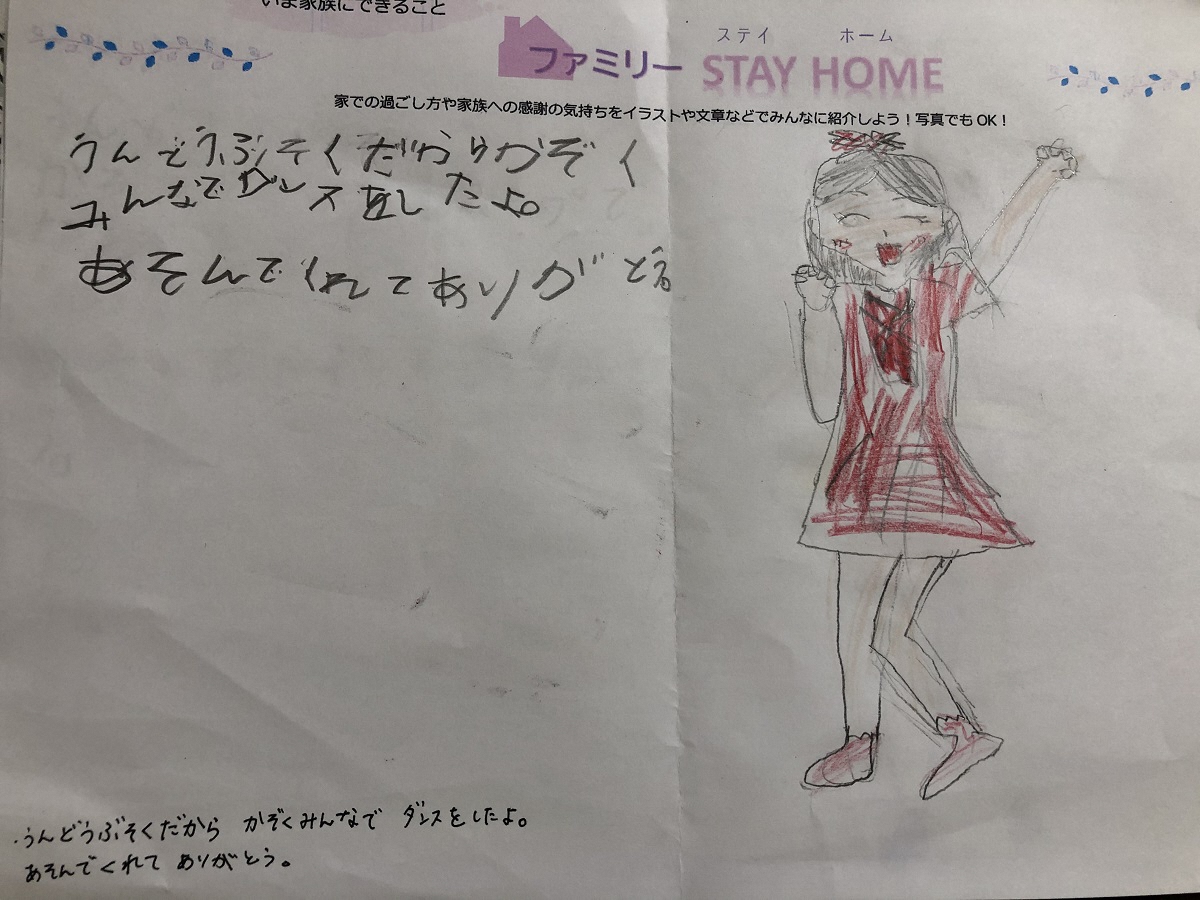 いま家族にできること
ステイ ホーム
ファミリー STAY HOME
家での過ごし方や家族への感謝の気持ちをイラストや文章などでみんなに紹介しよう！写真でもOK！
うんどうぶそくだからかぞく
みんなでダンスをしたよ。
あそんでくれてありがとう
・うんどうぶそくだから かぞくみんなで ダンスをしたよ。
あそんでくれて ありがとう。